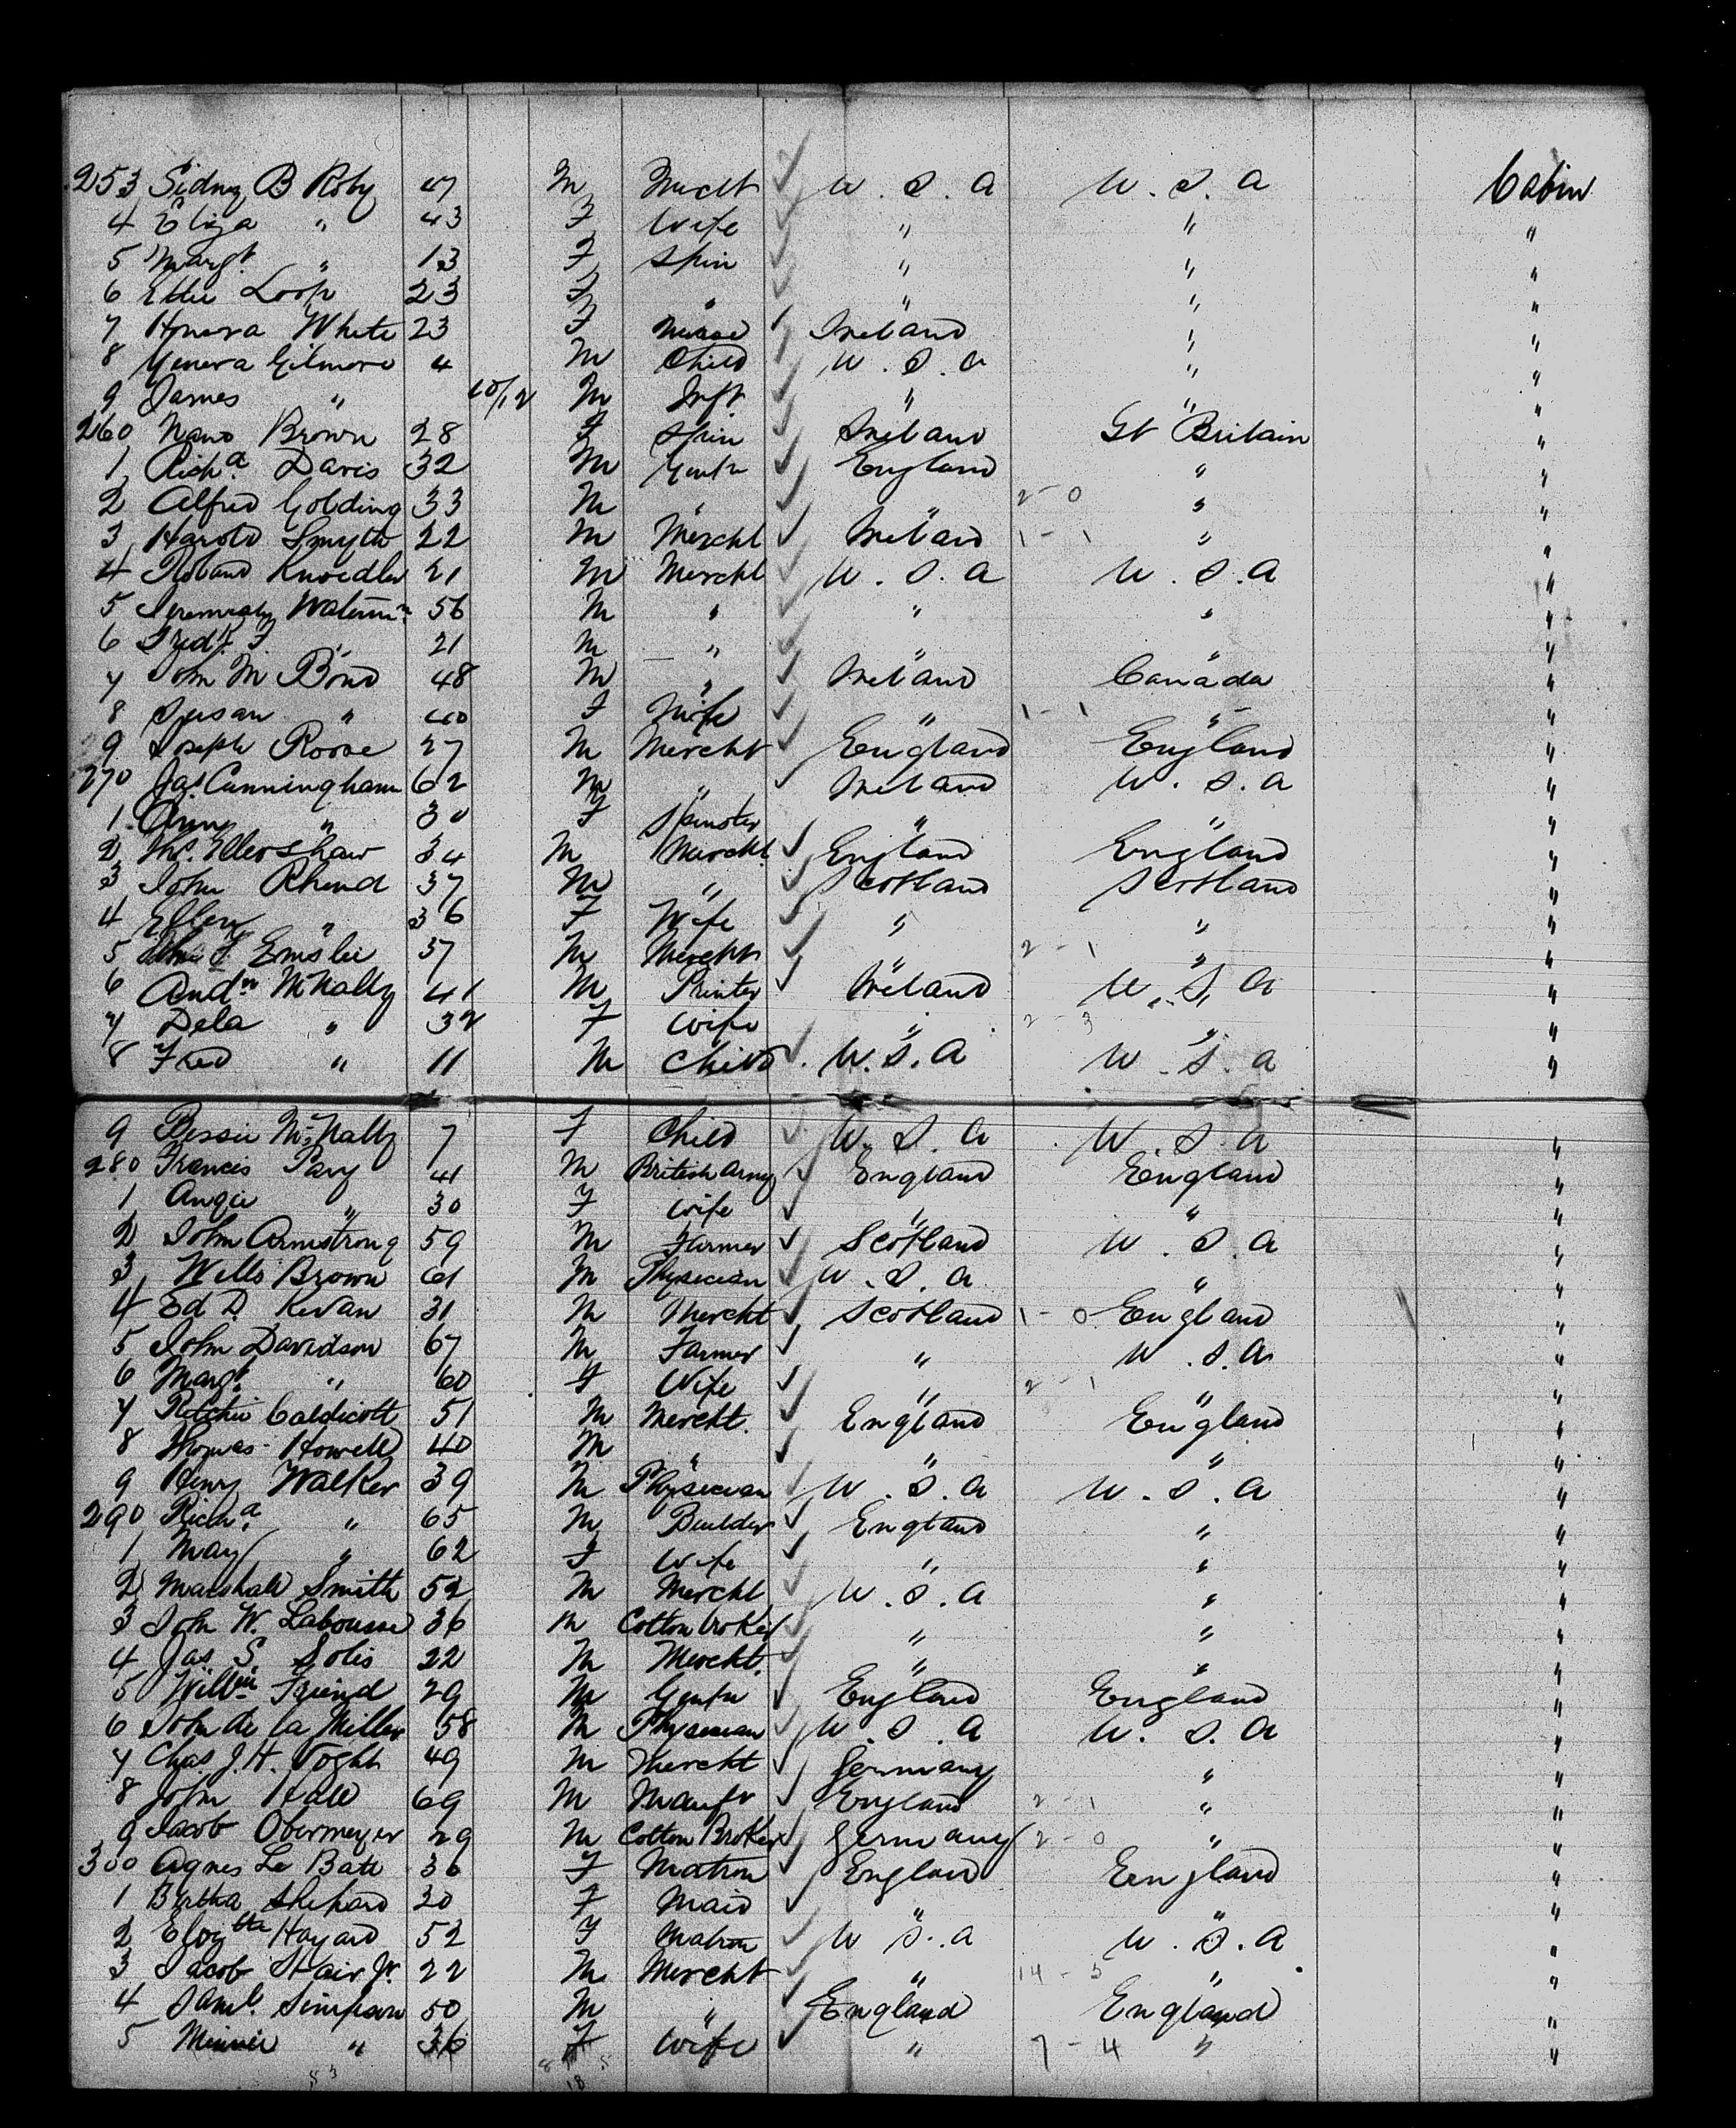 253 Sidney B Roby 47 M Mercht U. S. A U. S. A Cabin
4 Eliza " 43 F Wife " " "
5 Margt. " 13 F Spin " " "
6 Ettie Loop 23 F " " " "
7 Honora White 23 F Nurse Ireland " "
8 Genera Gilmore 4 M Child U. S. A " "
9 James " 10/12 M Inft. " " "
260 Brown 28 F Spin Ireland Gt Britain "
1 Richd. Davis 32 M Gentn England " "
2 Alfred Golding 33 M " " 2 - 0 " "
3 Harold Smyth 22 M Mercht Ireland 1 - 1 " "
4 Roland Knoedler 21 M Mercht U. S. A U. S. A "
5 Jeremiah 56 M " " " "
6 Fredk. F " 21 M " " " "
7 John M Bond 48 M " Ireland Canada "
8 Susan " 40 F Wife " 1 - 1 " "
9 Joseph 27 M Mercht England England "
270 Jas. Cunningham 62 M " Ireland U. S. A "
1 " 30 F Spinster " " "
2 Ellershaw 34 M Mercht. England England "
3 John Rhind 37 M " Scotland Scotland "
4 Ellen " 36 F Wife " " "
5 F Emslie 37 M Mercht " 2 - 1 " "
6 Andw McNally 41 M Printer Ireland U. S. A "
7 Dela " 32 F Wife " 2 - 3 " "
8 Fred " 11 M Child U. S. A U. S. A "
9 Bessie McNally 7 F Child U. S. A U. S. A "
280 Francis Pavy 41 M British Army England England "
1 Angie " 30 F Wife " " "
2 John Armstrong 59 M Farmer Scotland U. S. A "
3 Wells Brown 61 M Physician U. S. A " "
4 Ed D. Kevan 31 M Mercht Scotland 1 - 0 England "
5 John Davidson 67 M Farmer " U. S. A "
6 Margt. " 60 F Wife " 2 - 1 " "
7 Ritchie Caldicott 51 M Mercht. England England "
8 Thomas Howell 40 M " " " "
9 Henry Walker 39 M Physician U. S. A U. S. A "
290 Richd. " 65 M Builder England " "
1 May " 62 F Wife " " "
2 Marshall Smith 52 M Mercht U. S. A " "
3 John W. Labouisse 36 M Cotton broker " " "
4 Jas S. Solis 22 M Mercht. " " "
5 Willm Friend 29 M Gentn England England "
6 John de la Miller 58 M Physician U. S. A U. S. A "
7 Chas. J. H. Voght 49 M Mercht Germany " "
8 John Hall 69 M Manfr England 2 - 1 " "
9 Jacob Obermeyer 29 M Cotton Broker Germany 2 - 0 " "
300 Agnes Le Bate 36 F Matron England England "
1 Bertha Shepard 30 F Maid " " "
2 52 F Matron U S. A U. S. A "
3 Jacob Stair Jr. 22 M Mercht " 14 - 5 " "
4 Saml. Simpson 50 M " England England "
5 Minnie " 36 F Wife " 7 - 4 " "
83 18